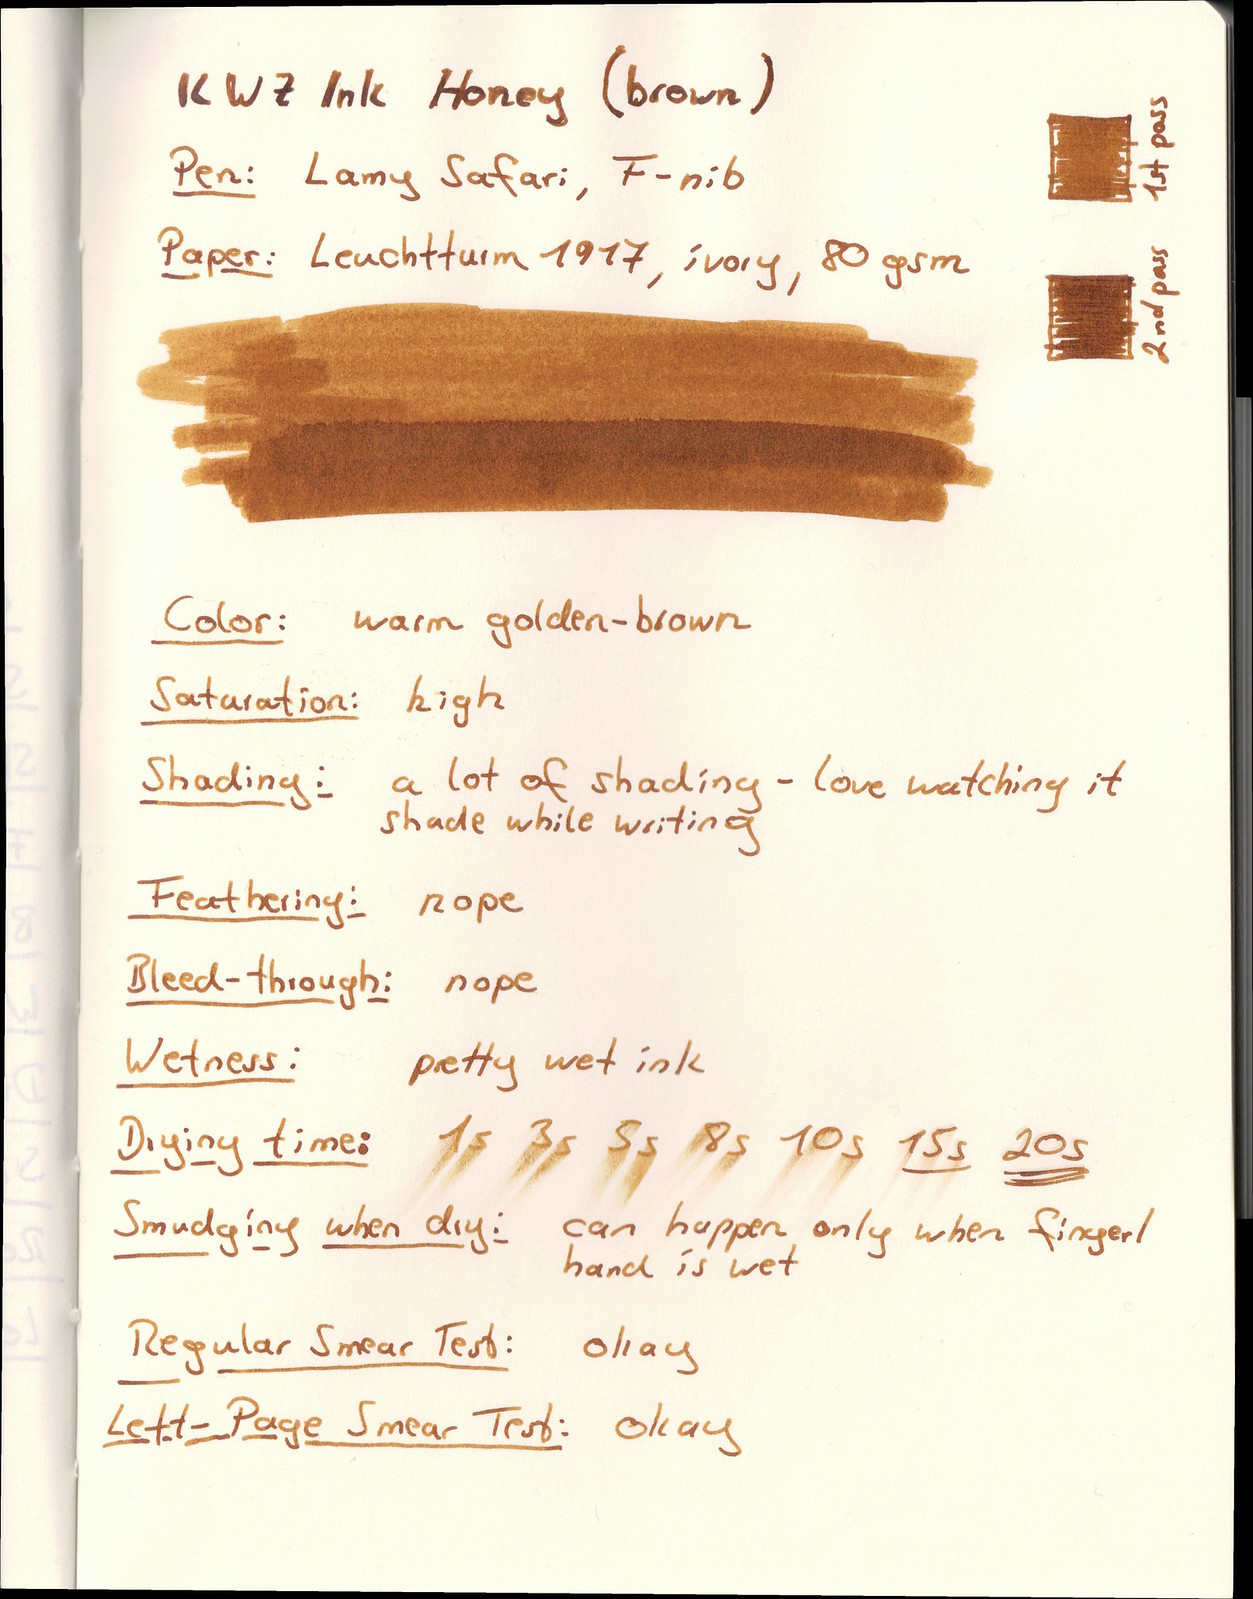 KWZ Ink Honey (brown)
Pen: Lamy Safari, F-nib
Paper: Leuchtturm 1917, ivory, 80 gsm
1st pass
2nd pass
Color: warm golden-brown
Saturation: high
Shading: a lot of shading - love watching it
shade while writing
Feathering: nope
Bleed-through: nope
Wetness: pretty wet ink
Drying time: 1s 3s 5s 8s 10s 15s 20s
Smudging when dry: can happen only when finger/
hand is wet
Regular Smear Test: okay
Left-Page Smear Test: okay